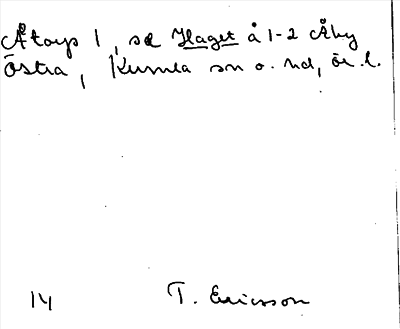 Åtorp 1, se Haget å 1-2 Åby
Östra, Kumla sn o. hd, ör. l.
14 T. Ericsson